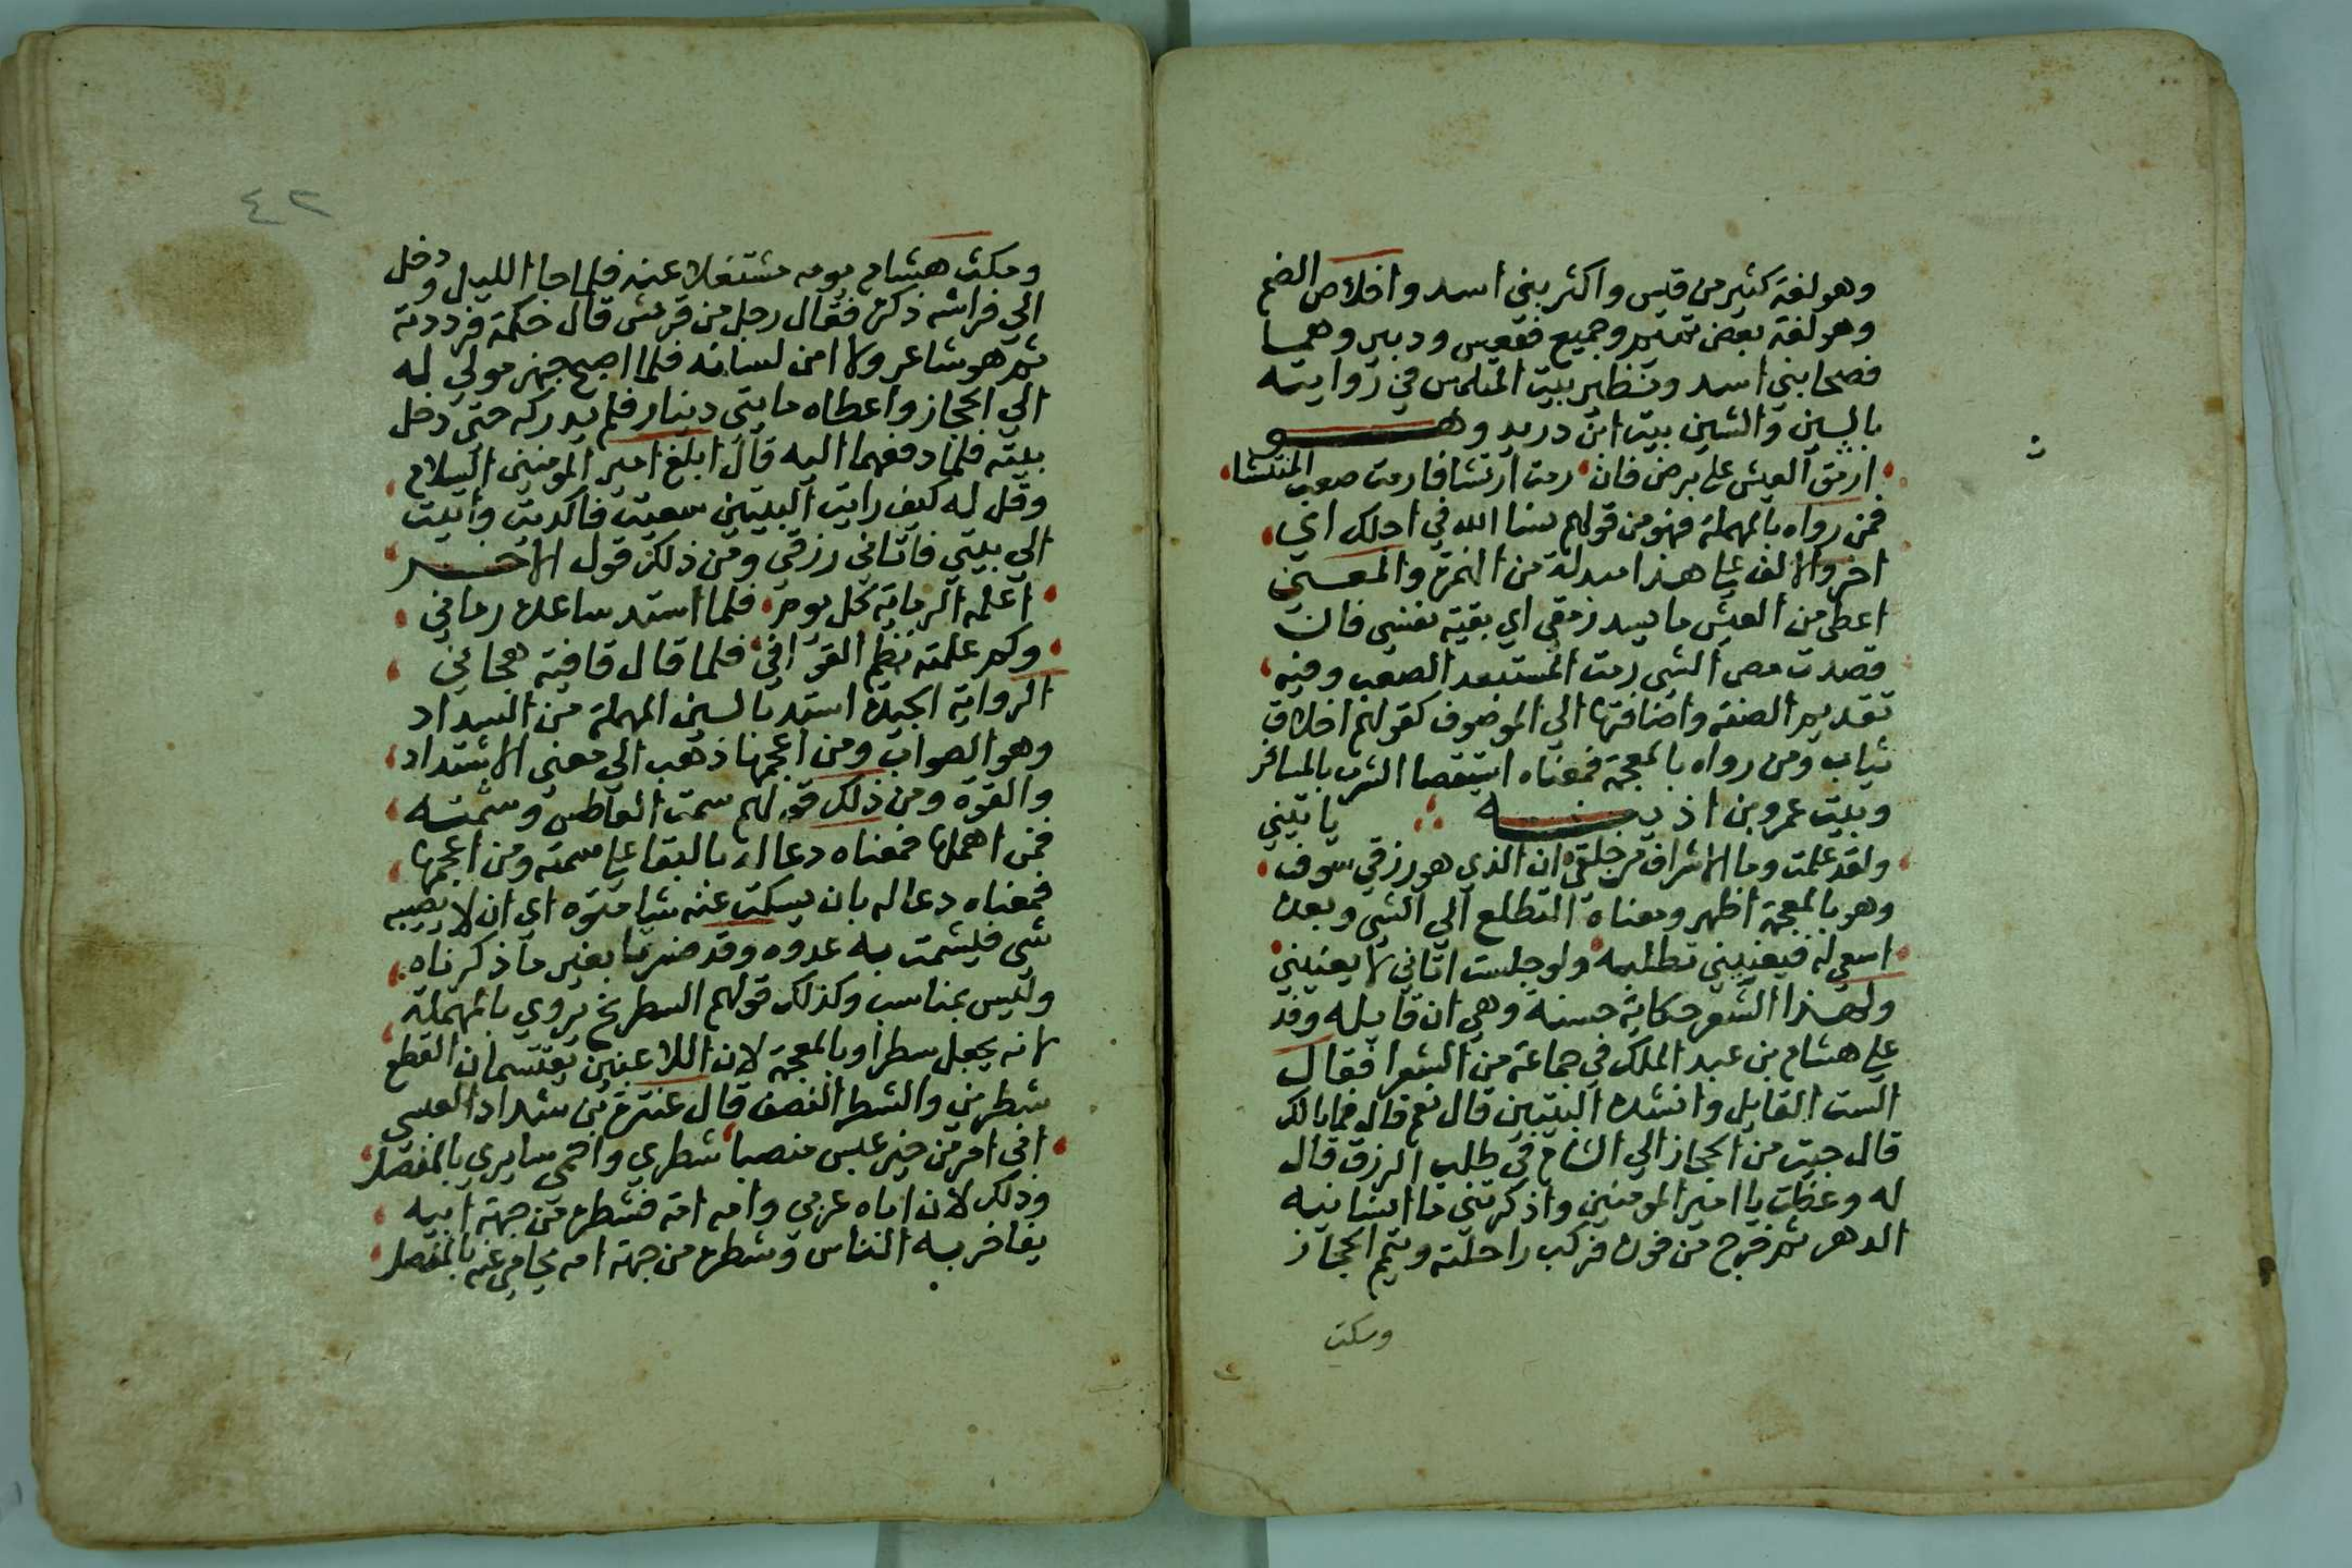 وهو لغة كثير من قيس واكثر بني اسد واخلاص الضم
وهو لغة بعض تميم وجميع فقعس ودبير وهما
فصحا بني اسد ونظير بيت المتلمس في روايته
بالسين والشين بيت ابن دريد وهو
ارمق العيش على برض فان رمت ارتشافا رمت صعب المنتشا
فمن رواه بالمهملة فهو من قولهم نسا الله في اجلك اي
اخر والالف على هذا مبدلة من الهمزة والمعنى
اعطى من العيش ما يسد رمقي اي بقية نفسي فان
قصدت مص الشي رمت المستبعد الصعب وفيه
تقديم الصفة واضافتها الى الموصوف كقولهم اخلاق
ثياب ومن رواه بالمعجمة فمعناه استقصا الشرب بالمسافر
وبيت عمرو بن اذينه ياتيني
ولقد علمت وما الاشراف من خلقي ان الذي هو رزقي سوف
وهو بالمعجمة اظهر ومعناه التطلع الى الشي وبعده
اسعى له فيعنيني تطلبه ولو جلست اتاني لا يعنيني
ولهذا الشعر حكاية حسنة وهي ان قايله وفد
على هشام بن عبد الملك في جماعة من الشعرا فقال
الست القايل وانشده البيتين قال نعم قال فما بالك
قال جيت من الحجاز الي الشام في طلب الرزق قال
له وعظت يا امير المومنين واذكرتني ما انسانيه
الدهر ثم خرج من فوره فركب راحلته ويمم الحجاز
ومكث
٤٢
ومكث هشام يومه مشتغلا عنه فلما جا الليل ودخل
الي فراشه ذكره فقال رجل من قريش قال حكمة فرددته
ثم هو شاعر ولا امن لسانه فلما اصبح جهز مولي له
الي الحجاز واعطاه مايتي دينار فلم يدركه حتى دخل
بيته فلما دفعهما اليه قال ابلغ امير المومنين السلام
وقل له كيف رايت البيتين سعيت فاكديت واتيت
الي بيتي فاتاني رزقي ومن ذلك قول الاخر
اعلمه الرماية كل يوم فلما استد ساعده رماني
وكم علمته نظم القوافي فلما قال قافية هجاني
الرواية الجيدة استد بالسين المهملة من السداد
وهو الصواب ومن اعجمها ذهب الي معنى الاشتداد
والقوة ومن ذلك قولهم سمت العاطس وشمته
فمن اهملها فمعناه دعا له بالبقا على سمته ومن اعجمها
فمعناه دعا له بان يسكت عنه شيا مقوه اي ان لا يصيبه
شي فيشمت به عدوه وقد فسرها بغير ما ذكرناه
وليس بمناسب وكذلك قولهم السطرنج يروي بالمهملة
لانه يجعل سطرا وبالمعجمة لان اللاعبين يقتسمان القطع
شطرين والشطر النصف قال عنترة بن شداد العبسي
اني امرؤ من خير عبس منصبا شطري واحمي سايري بالمنصل
وذلك لان اباه عربي وامه امة فشطره من جهة ابيه
يفاخر به الناس وشطره من جهة امه يحامي عنه بالمنصل